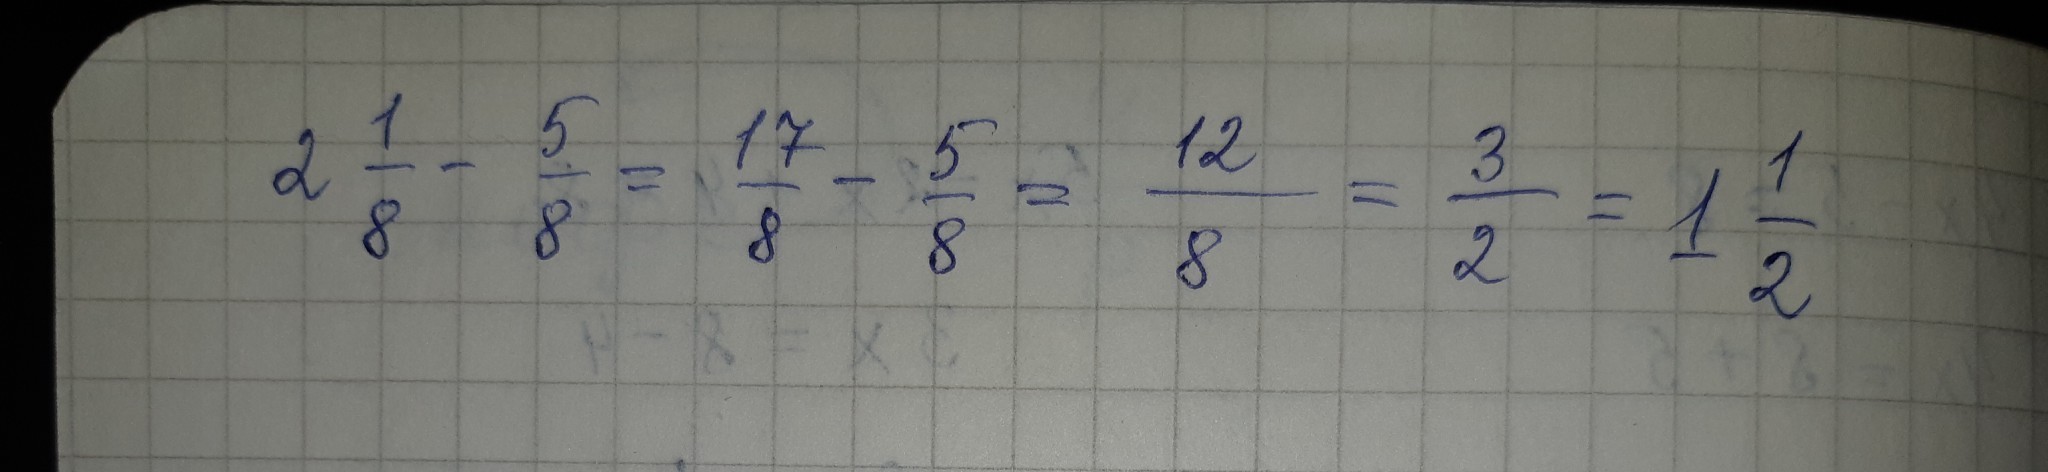 2 1/8 - 5/8 = 17/8 - 5/8 = 12/8 = 3/2 = 1 1/2